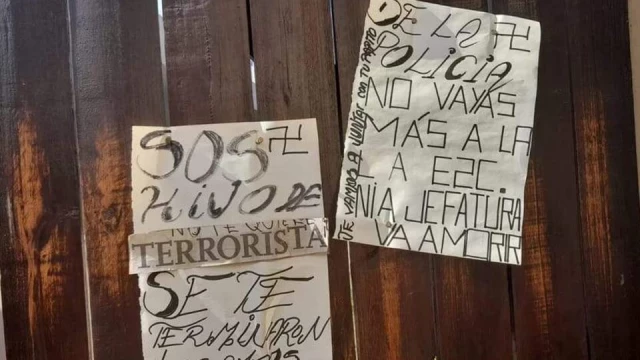 SOS 卐
HIJO DE
NO TE QUIEREN
TERRORISTA
SE TE
TERMINARON
DE LA 卐
POLICIA
NO VAYAS
MÁS A LA
E2C.
NI A JEFATURA
VA A MORIR
TE VAMOS A JUNTAR CON TU PAPITO